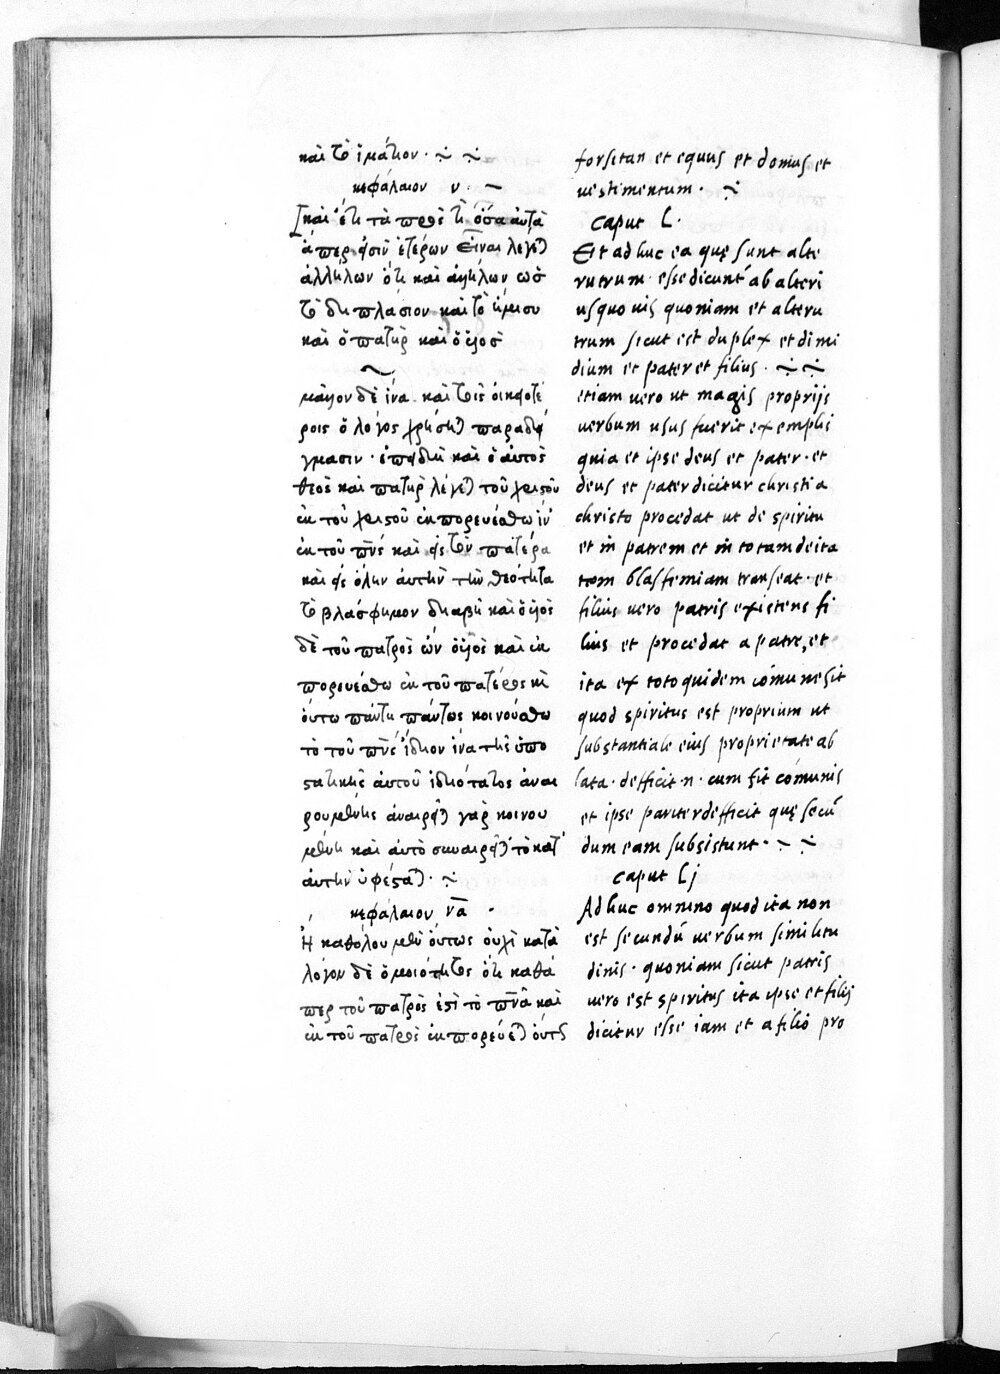 καὶ τὸ ἱμάτιον
κεφάλαιον ν
καὶ ἔτι τὰ πρός τι ὅσα αὐτὰ
ἅπερ φησὶν ἑτέρων εἶναι λέγεται
ἀλλήλων ὅτι καὶ ἀλλήλων ὡς
τὸ διπλάσιον καὶ τὸ ἥμισυ
καὶ ὁ πατὴρ καὶ ὁ υἱός
μᾶλλον δὲ ἵνα καὶ τοῖς οἰκειοτέ
ροις ὁ λόγος χρήσηται παραδεί
γμασιν · ἐπειδὴ καὶ ὁ αὐτὸς
θεὸς καὶ πατὴρ λέγεται τοῦ χριστοῦ
ἐκ τοῦ χριστοῦ ἐκπορευέσθω ἵν'
ἐκ τοῦ πνς καὶ εἰς τὸν πατέρα
καὶ εἰς ὅλην αὐτὴν τὴν θεότητα
τὸ βλάσφημον διαβῇ καὶ ὁ υἱὸς
δὲ τοῦ πατρὸς ὢν ὁ υἱὸς καὶ ἐκ
πορευέσθω ἐκ τοῦ πατέρος καὶ
οὕτω πάντη πάντως κοινούσθω
τὸ τοῦ πνς ἴδιον ἵνα τῆς ὑπο
στατικῆς αὐτοῦ ἰδιότητος ἀναι
ρουμένης ἀναιρεῖται γὰρ κοινου
μένη καὶ αὐτὸ συναιρεῖται τὸ κατ'
αὐτὴν ὑφέσται ·
κεφάλαιον να
Ἢ καθόλου μὲν οὕτως οὐχὶ κατὰ
λόγον δὲ ὁμοιότητος ὅτι καθά
περ τοῦ πατρός ἐστὶ τὸ πνα καὶ
ἐκ τοῦ πατρὸς ἐκπορεύεται οὕτως
forsitan et equus et domus et
uestimentum ·
caput L ·
Et ad huc ea quę sunt alte
rutrum · esse dicunt ab alteri
usquo uis quoniam et alteru
trum sicut est duplex et dimi
dium et pater et filius ·
etiam uero ut magis proprijs
uerbum usus fuerit exemplis
quia et ipse deus et pater · et
deus et pater dicitur christi a
christo procedat ut de spiritu
et in patrem et in totam deita
tem blasfemiam transeat · et
filius uero patris existens fi
lius et procedat a patre, et
ita ex toto quidem cómune sit
quod spiritus est proprium ut
substantiale eius proprietate ab
lata · defficit · n · cum fit cómunis
et ipse pariter defficit quę secū
dum eam subsistunt ·
caput Lj
Ad huc omnino quod ita non
est secundū uerbum similitu
dinis · quoniam sicut patris
uero est spiritus ita ipse et filij
dicitur esse iam et a filio pro